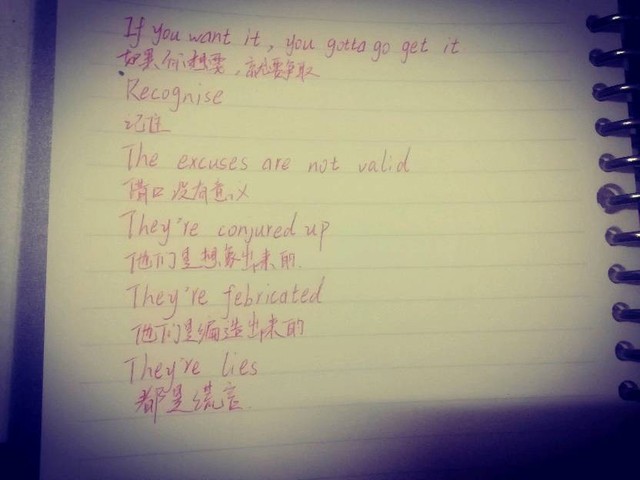 If you want it, you gotta go get it
如果你想要，就要争取
Recognise
记住
The excuses are not valid
借口没有意义
They're conjured up
他们是想象出来的.
They're febricated
他们是编造出来的
They're lies
都是谎言.